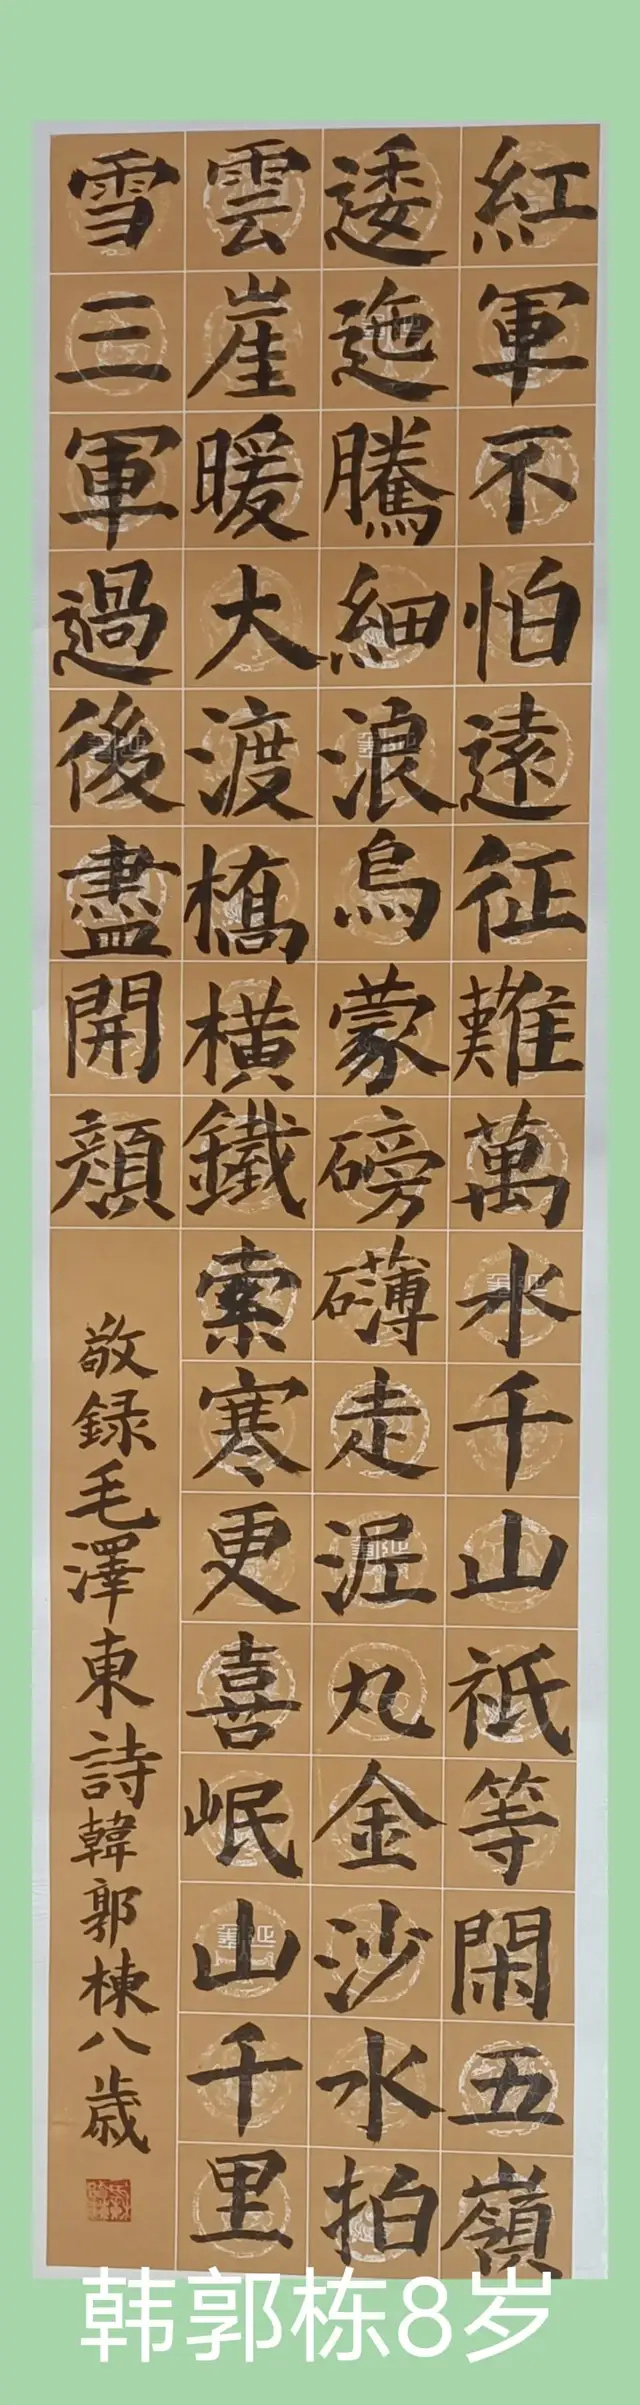 紅軍不怕遠征難萬水千山祇等閑五嶺
逶迤騰細浪烏蒙磅礴走泥丸金沙水拍
雲崖暖大渡橋橫鐵索寒更喜岷山千里
雪三軍過後盡開顏
敬録毛澤東詩韓郭棟八歲
韩郭栋8岁